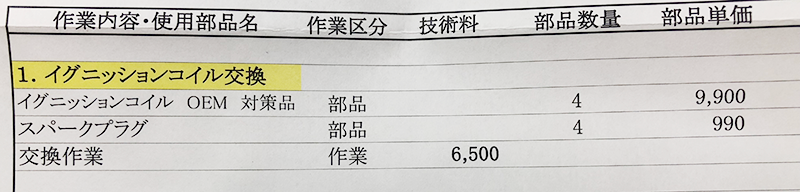 作業内容・使用部品名 作業区分 技術料 部品数量 部品単価
1. イグニッションコイル交換
イグニッションコイル OEM 対策品 部品 4 9,900
スパークプラグ 部品 4 990
交換作業 作業 6,500